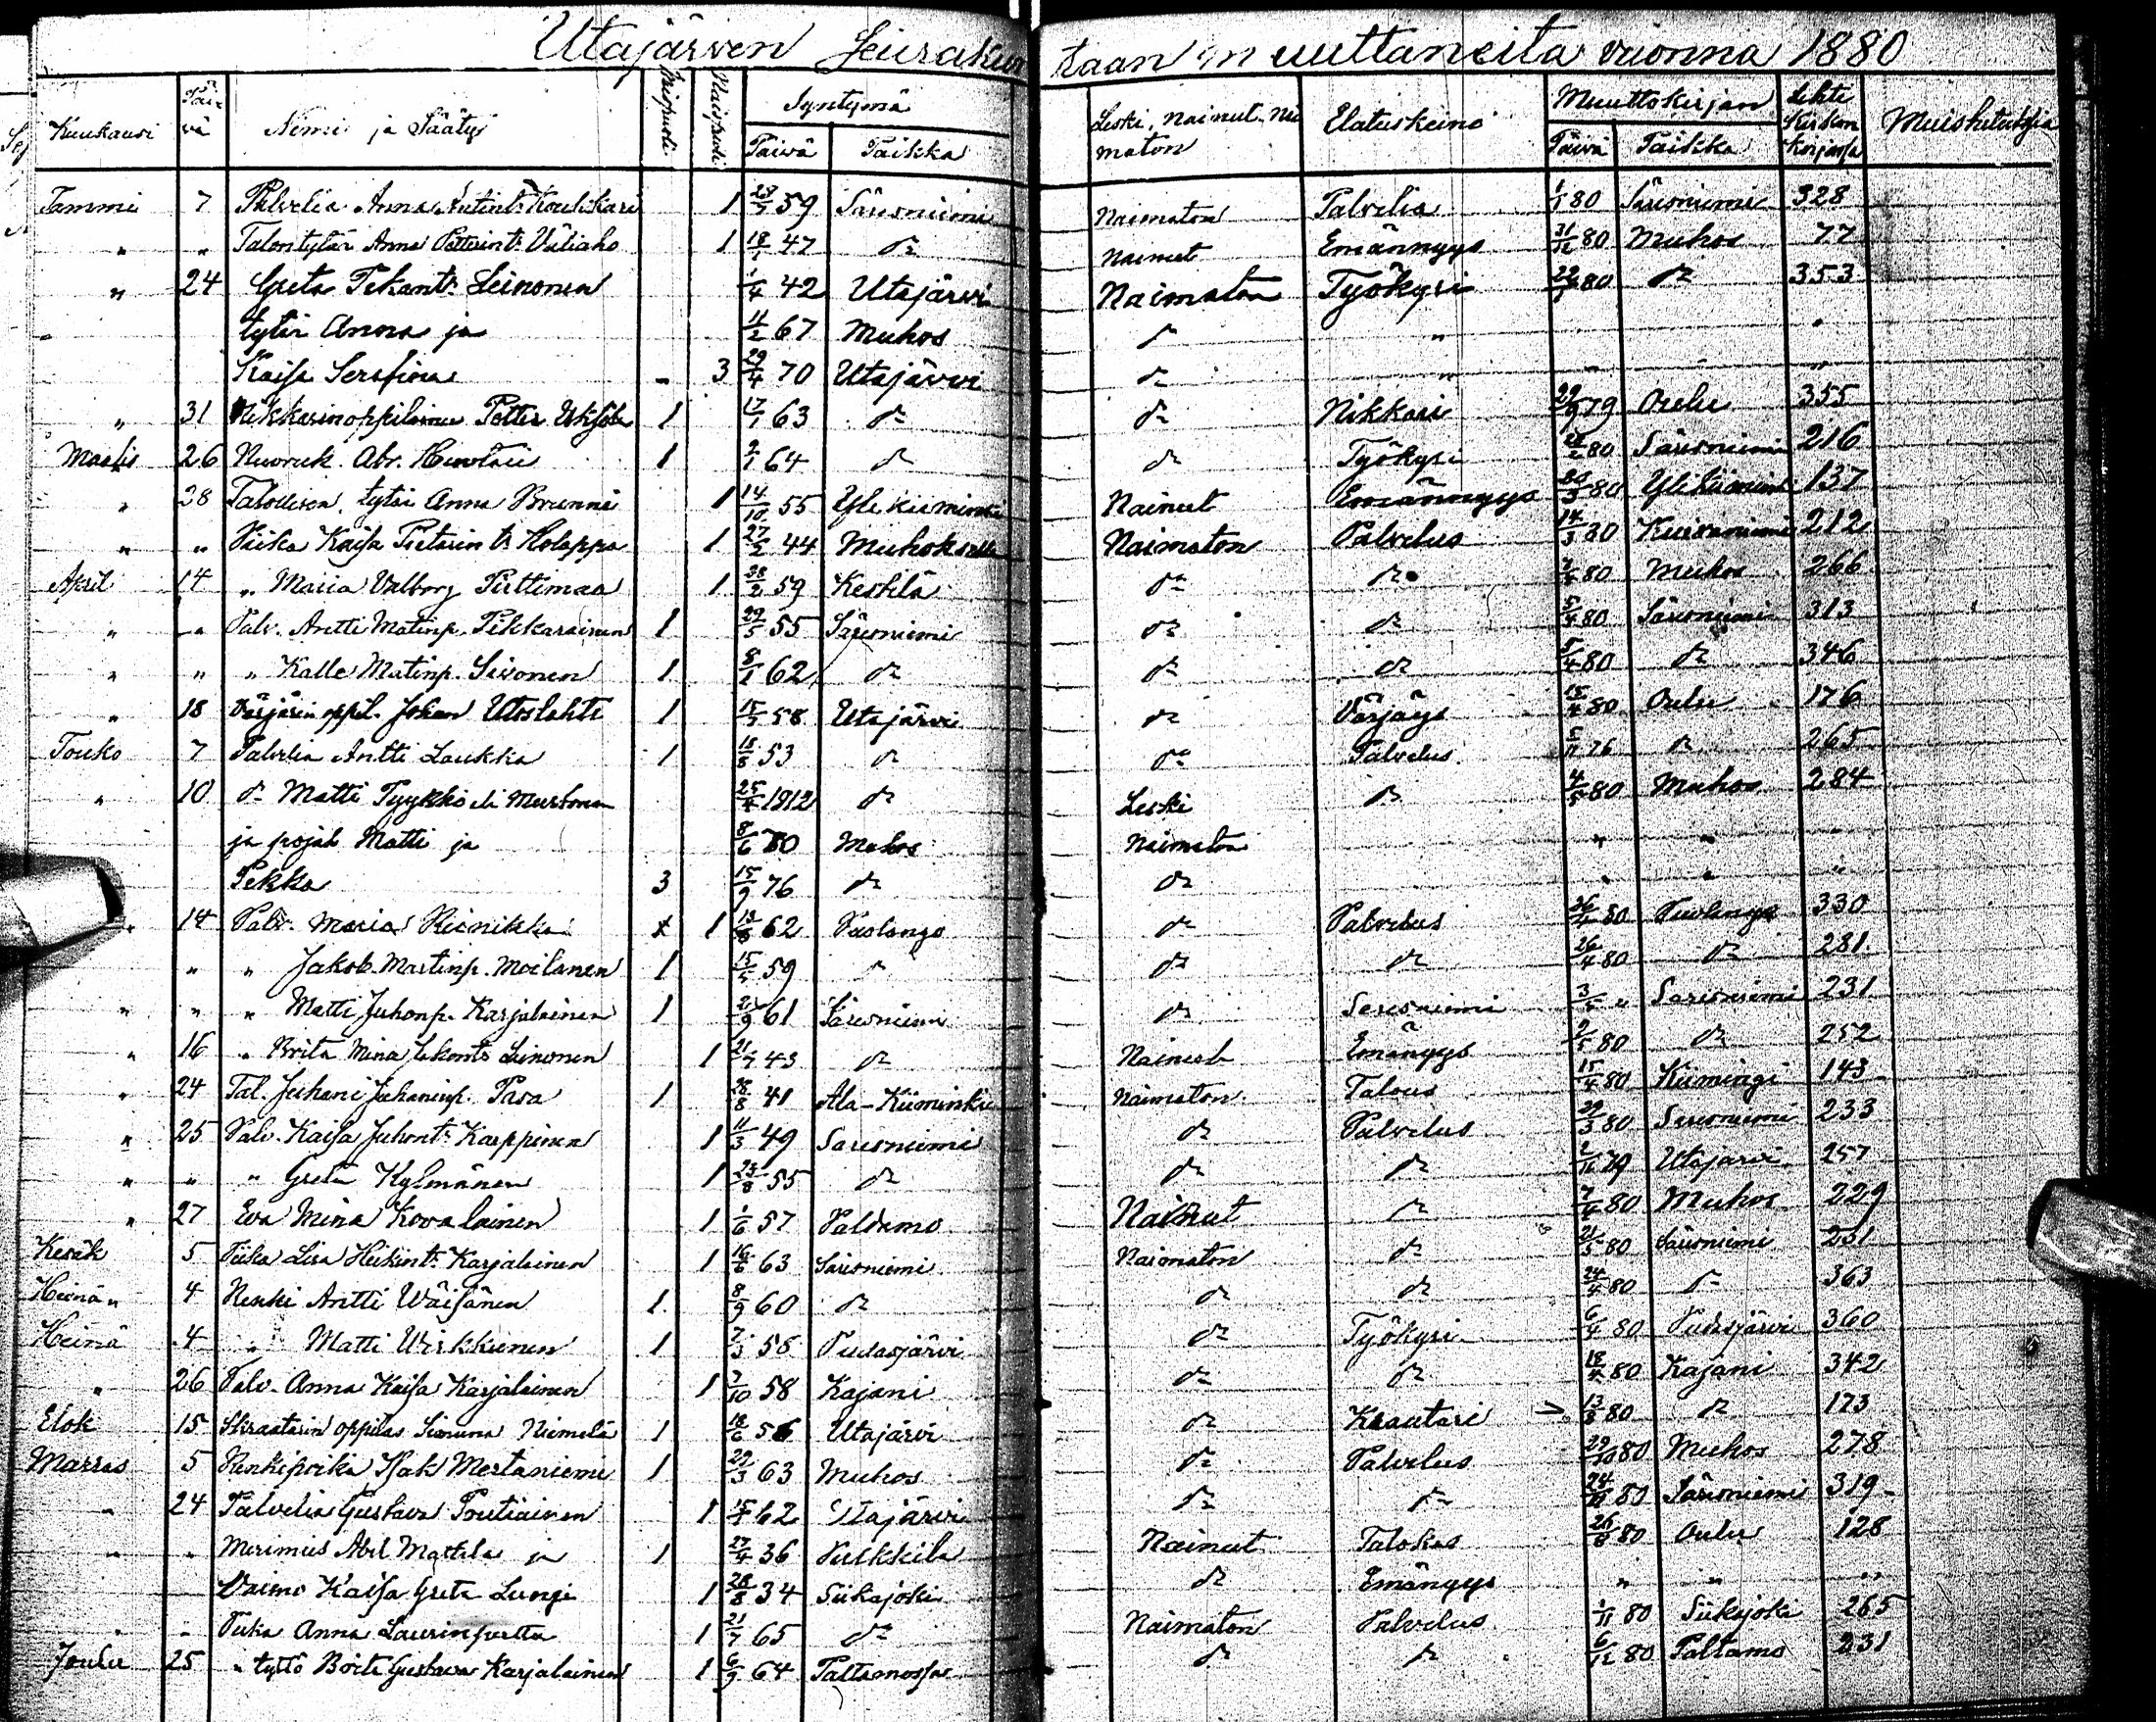 Utajärven Seurakuntaan muuttaneita vuonna 1880
Kuukausi Päivä Nimi ja Sääty Miespuoli Naispuoli Syntymä Päivä Paikka Leski, Nainut, Naimaton Elatuskeino Muuttokirjan Päivä Paikka Lehti Kirkonkirjassa Muistutuksia
Tammi 7 Palvelia Anna Antint. 1 59 Säresniemi Naimaton Palvelia 1/1 80 Säresniemi 328
" " Talontytär Anna Petterint. Väliaho 1 18/1 47 do Nainut Emännyys 31/12 80 Muhos 77
" 24 Greta Pekant. Leinonen 1/4 42 Utajärvi Naimaton Työkyri 22/1 80 do 353
" tytär Anna ja 11/2 67 Muhos do "
Kaisa Serafina - 3 29/4 70 Utajärvi do "
" 31 Nikkarinoppilainen Petter 1 17/1 63 do do Nikkari 79 Oulu 355
Maalis 26 Nuoruk. Abr. 1 2/1 64 do do Työkyri 80 Säresniemi 216
" 28 tytär Anna Brunni 1 14/10 55 Yli kiiminki Nainut Emännyys 20/3 80 Ylikiiminki 137
" " Piika Kaisa Pietarin tr Holappa 1 27/2 44 Muhoksella Naimaton Palvelus 14/3 80 Kuivaniemi 212
April 14 " Maria Valborg Pirttimaa 1 28/2 59 Kestilä do do 80 Muhos 266
" " Palv. Antti Matinp. Pikkarainen 1 29/5 55 Säresniemi do do 5/4 80 Säresniemi 313
" " " Kalle Matinp. Sivonen 1 8/1 62 do do do 5/4 80 do 346
" 18 Värjärin oppil. Johan Utoslahti 1 58 Utajärvi do Värjäys 15/4 80 Oulu 176
Touko 7 Palvelia Antti Laukka 1 18/8 53 do do Palvelus 5/11 76 do 265
" 10 do Matti Tyykkö eli Mustonen 25/4 1812 do Leski do 4/5 80 Muhos 284
ja pojat Matti ja 8/6 70 Muhos Naimaton " " "
Pekka 3 15/9 76 do do " " "
" 14 Palv. Maria x 1 62 Puolango do Palvelus 26/4 80 Puolango 330
" " Jakob Martinp. Moilanen 1 59 " do do 26/4 80 do 281
" " " Matti Juhonp. Karjalainen 1 61 Säresniemi do Säresniemi 3/5 " Säresniemi 231
" 16 " Brita Mina Leinonen 1 43 do Nainut Emänyys 2/5 80 do 252
" 24 Tal. Juhani Juhaninp. Pasa 1 28/8 41 Ala-Kiiminki Naimaton Talous 15/4 80 Kiimingi 143
" 25 Palv. Kaisa Juhont. Karppinen 1 11/3 49 Säresniemi do Palvelus 29/3 80 Säresniemi 233
" " " Greta Kylmänen 1 23/8 55 do do do 79 Utajärvi 257
" 27 Eva Mina Kovalainen 1 1/6 57 Paldamo Nainut do 80 Muhos 229
Kesäk 5 Piika Lisa Heikint. Karjalainen 1 16/6 63 Säresniemi Naimaton do 21/5 80 Säresniemi 231
Heinä " 4 Renki Antti Wäisänen 1 8/9 60 do do do 24/4 80 do 363
Heinä 4 " Matti Wirkkunen 1 58 Pudasjärvi do Työkyri 6/4 80 Pudasjärvi 360
" 26 Palv. Anna Kaisa Karjalainen 1 7/10 58 Kajani do do 18/4 80 Kajani 342
Elok 15 Skraatarin oppilas Simuna Niemelä 1 18/6 56 Utajärvi do Kraatari 13/8 80 do 173
Marras 5 Renkipoika Isak Mertaniemi 1 29/3 63 Muhos do Palvelus 29/10 80 Muhos 278
" 24 Palvelia Gustava Poutiainen 1 62 Utajärvi do do 80 Säresniemi 319
" " Merimies Abel Mattila ja 1 27/4 36 Pulkkila Nainut Talokas 26/8 80 Oulu 128
Vaimo Kaisa Greta Lungi 1 28/8 34 Siikajoki do Emänyys " " "
" " Piika Anna Laurinpertta 1 21/7 65 do Naimaton Palvelus 1/11 80 Siikajoki 265
Joulu 25 " tyttö Brita Gustava Karjalainen 1 6/9 64 Paltamossa do do 6/12 80 Paltamo 231